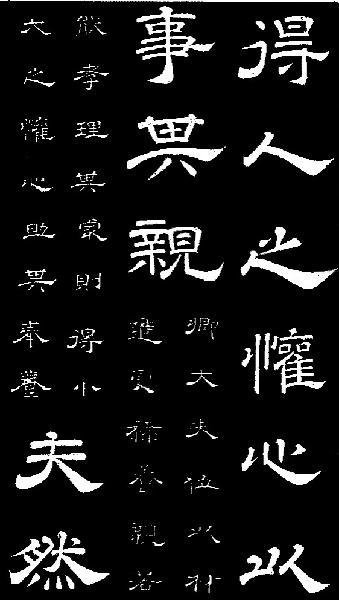 得人之懽心以
事其親
卿大夫位以材
進受祿養親若
能孝理其家則得小
大之懽心助其奉養
夫然